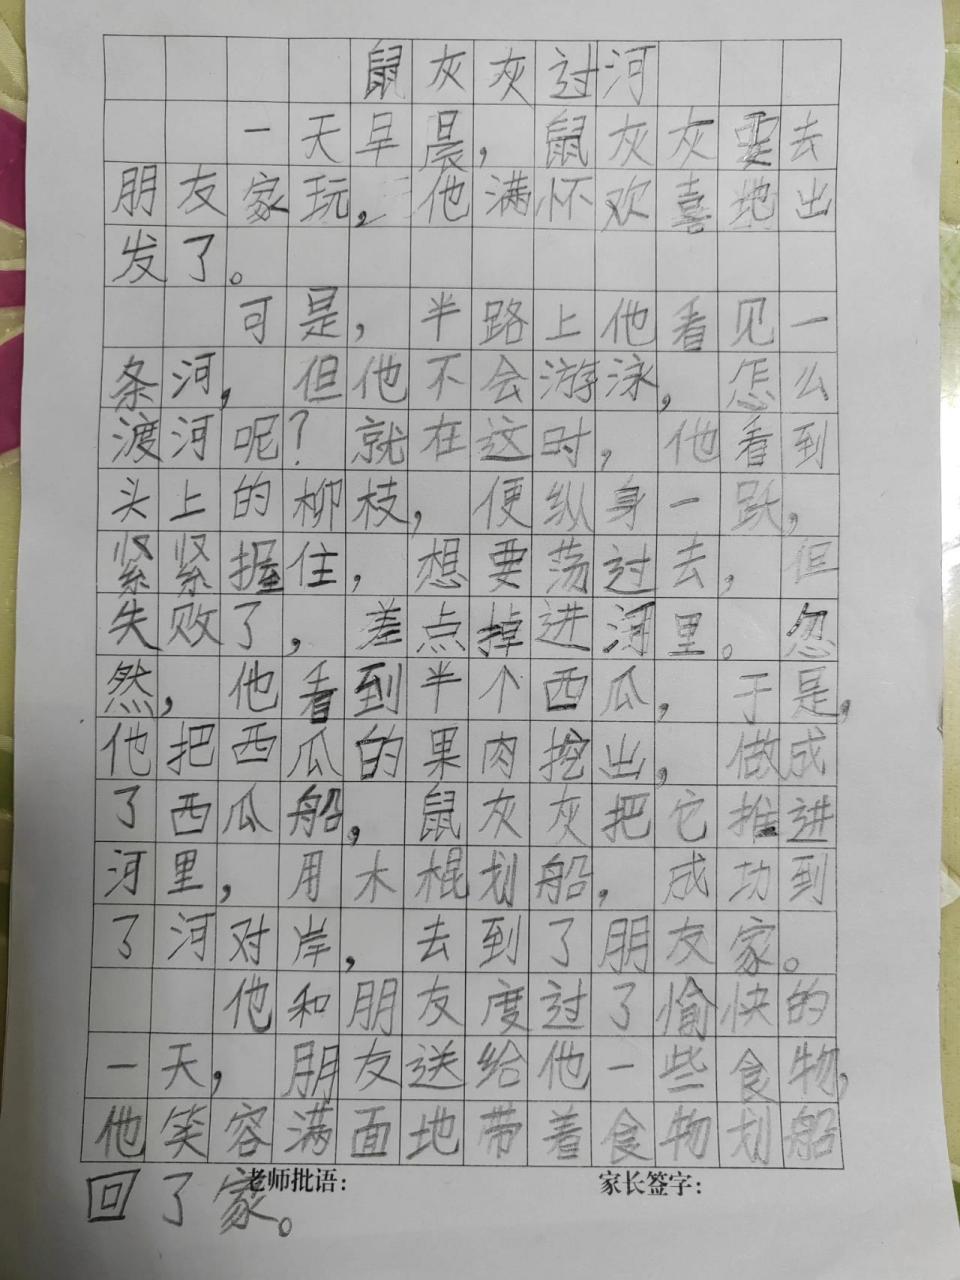 鼠灰灰过河
一天早晨，鼠灰灰要去
朋友家玩，他满怀欢喜地出
发了。
可是，半路上他看见一
条河，但他不会游泳，怎么
渡河呢？就在这时，他看到
头上的柳枝，便纵身一跃，
紧紧握住，想要荡过去，但
失败了，差点掉进河里。忽
然，他看到半个西瓜，于是，
他把西瓜的果肉挖出，做成
了西瓜船，鼠灰灰把它推进
河里，用木棍划船，成功到
了河对岸，去到了朋友家。
他和朋友度过了愉快的
一天，朋友送给他一些食物，
他笑容满面地带着食物划船
老师批语： 家长签字：
回了家。